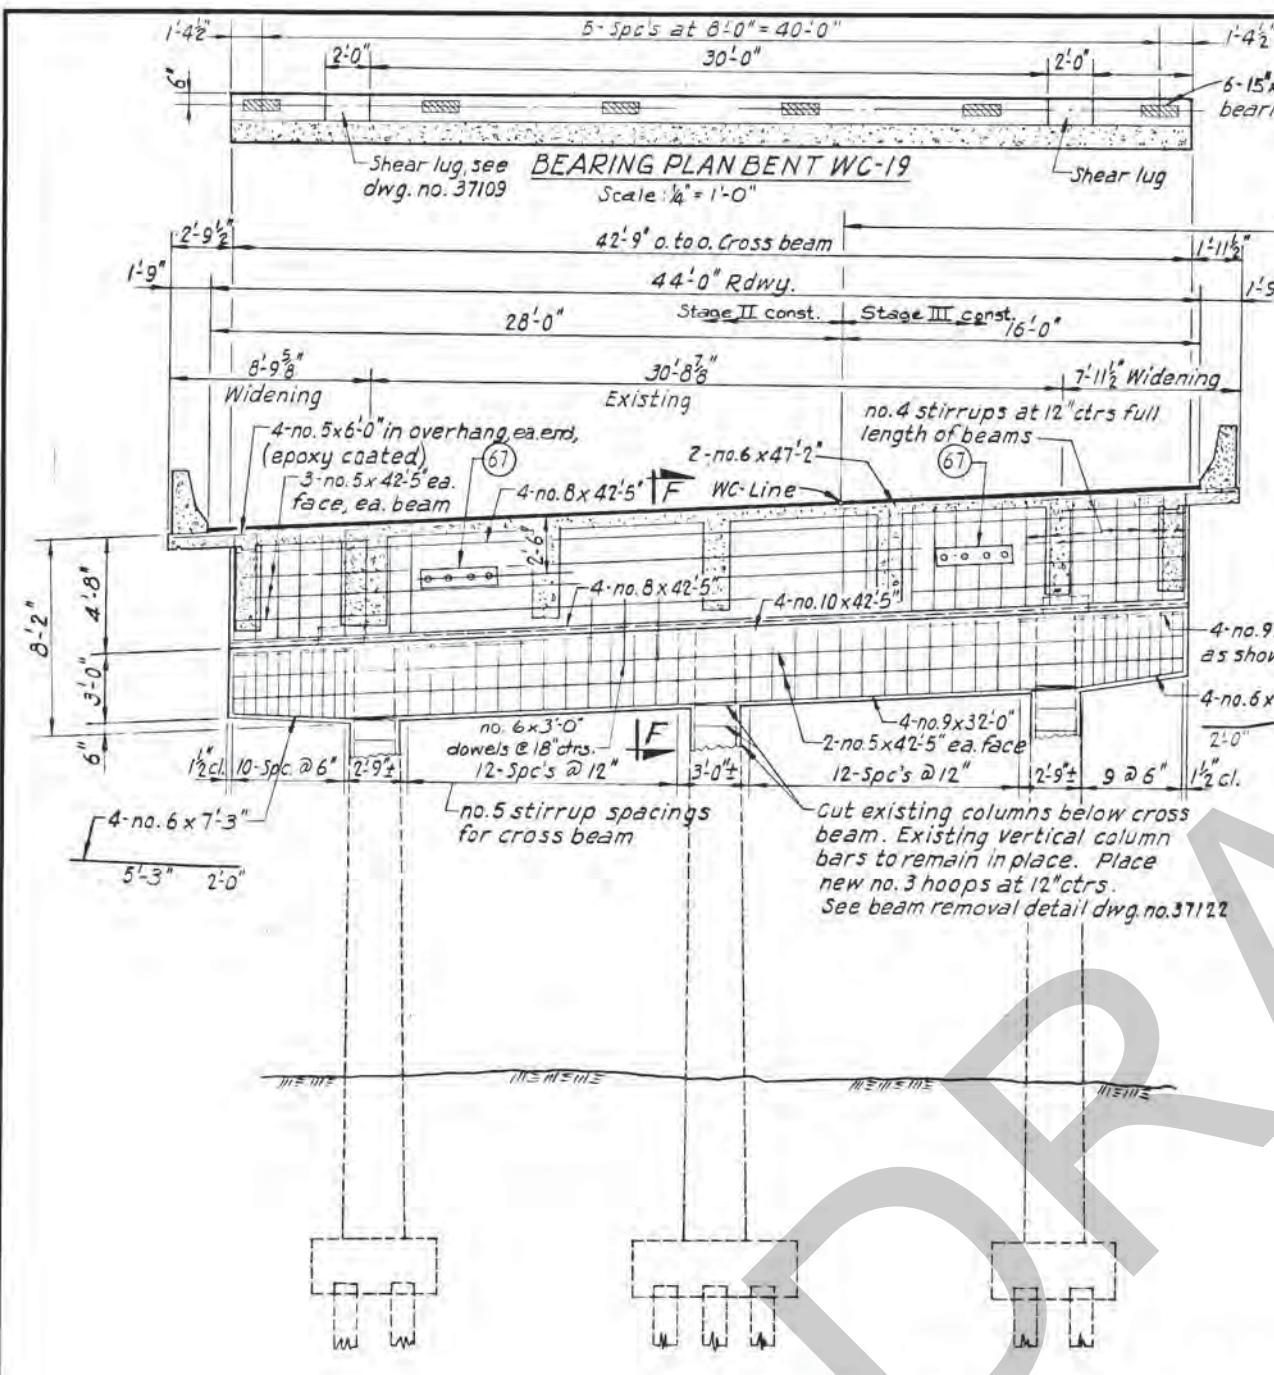 1'-4½"
5-Spc's at 8'-0" = 40'-0"
1'-4½"
2'-0"
30'-0"
2'-0"
6"
6-15"x
Shear lug, see
dwg. no. 37109
BEARING PLAN BENT WC-19
Scale: ¼" = 1'-0"
Shear lug
2'-9½"
42'-9" o. to o. Cross beam
1'-11½"
1'-9"
44'-0" Rdwy.
28'-0"
Stage II const.
Stage III const.
16'-0"
8'-9⅝"
Widening
30'-8⅞"
Existing
7'-11½" Widening
4-no.5x6'-0" in overhang, ea. end,
(epoxy coated)
67
3-no.5x42'-5" ea.
face, ea. beam
4-no.8x42'-5"
F
2-no.6x47'-2"
WC-Line
no.4 stirrups at 12" ctrs full
length of beams
67
2'-6"
4-no.8x42'-5"
4-no.10x42'-5"
8'-2"
4'-8"
3'-0"
6"
4-no.9
4-no.6x
2'-0"
no. 6x3'-0"
dowels @ 18" ctrs.
F
4-no.9x32'-0"
2-no.5x42'-5" ea. face
1½" cl.
10-Spc. @ 6"
2'-9"±
12-Spc's @ 12"
3'-0"±
12-Spc's @ 12"
2'-9"±
9 @ 6"
1½" cl.
4-no. 6 x 7'-3"
5'-3"
2'-0"
no.5 stirrup spacings
for cross beam
Cut existing columns below cross
beam. Existing vertical column
bars to remain in place. Place
new no. 3 hoops at 12" ctrs.
See beam removal detail dwg. no. 37122